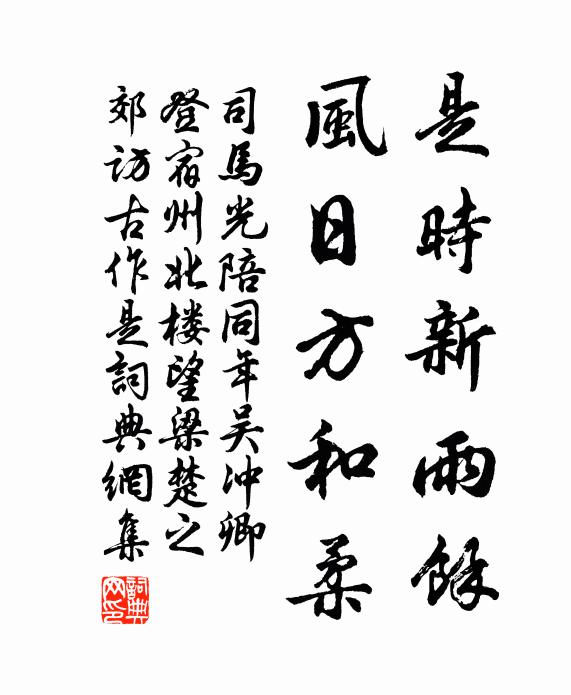 是時新雨餘
風日方和柔
司馬光陪同年吴冲卿
登宿州北楼望梁楚之
郊訪古作是詞典網集
詞典網印